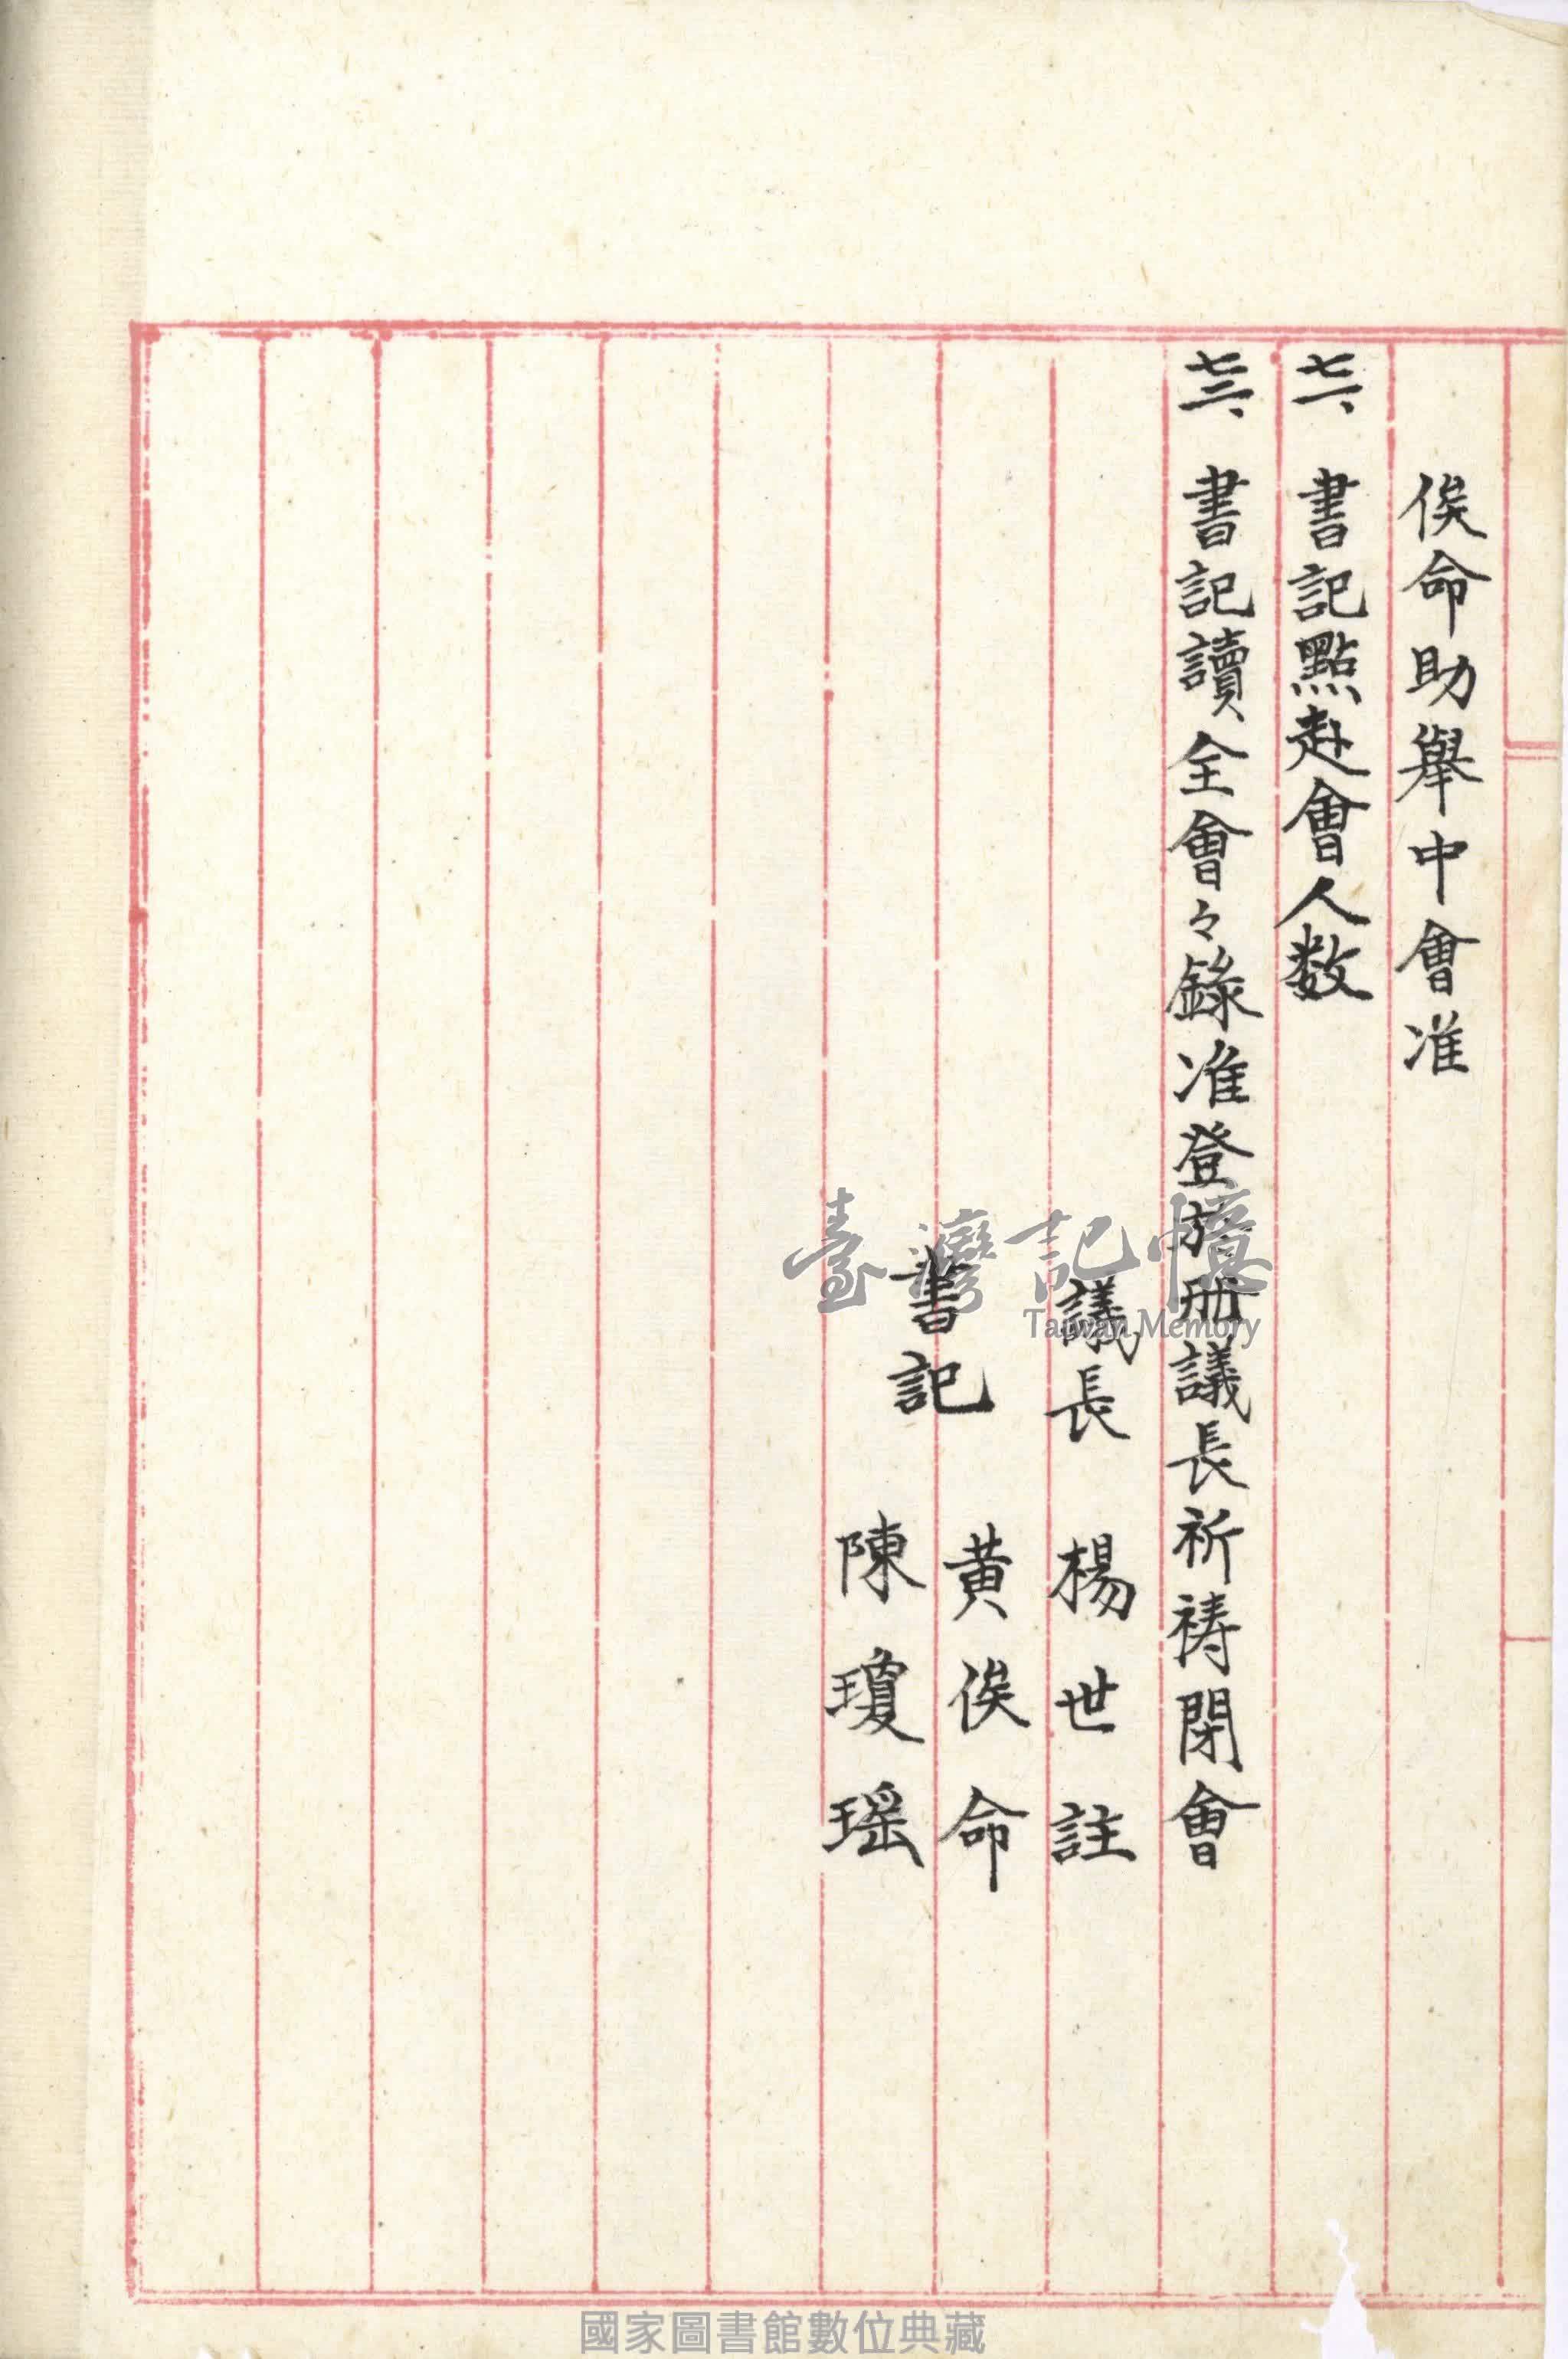 俟命助舉中會准
七二、書記點赴會人数
七三、書記讀全會々錄准登於册議長祈祷閉會
議長 楊世註
書記 黄俟命
陳瓊瑶
臺灣記憶
Taiwan Memory
國家圖書館數位典藏